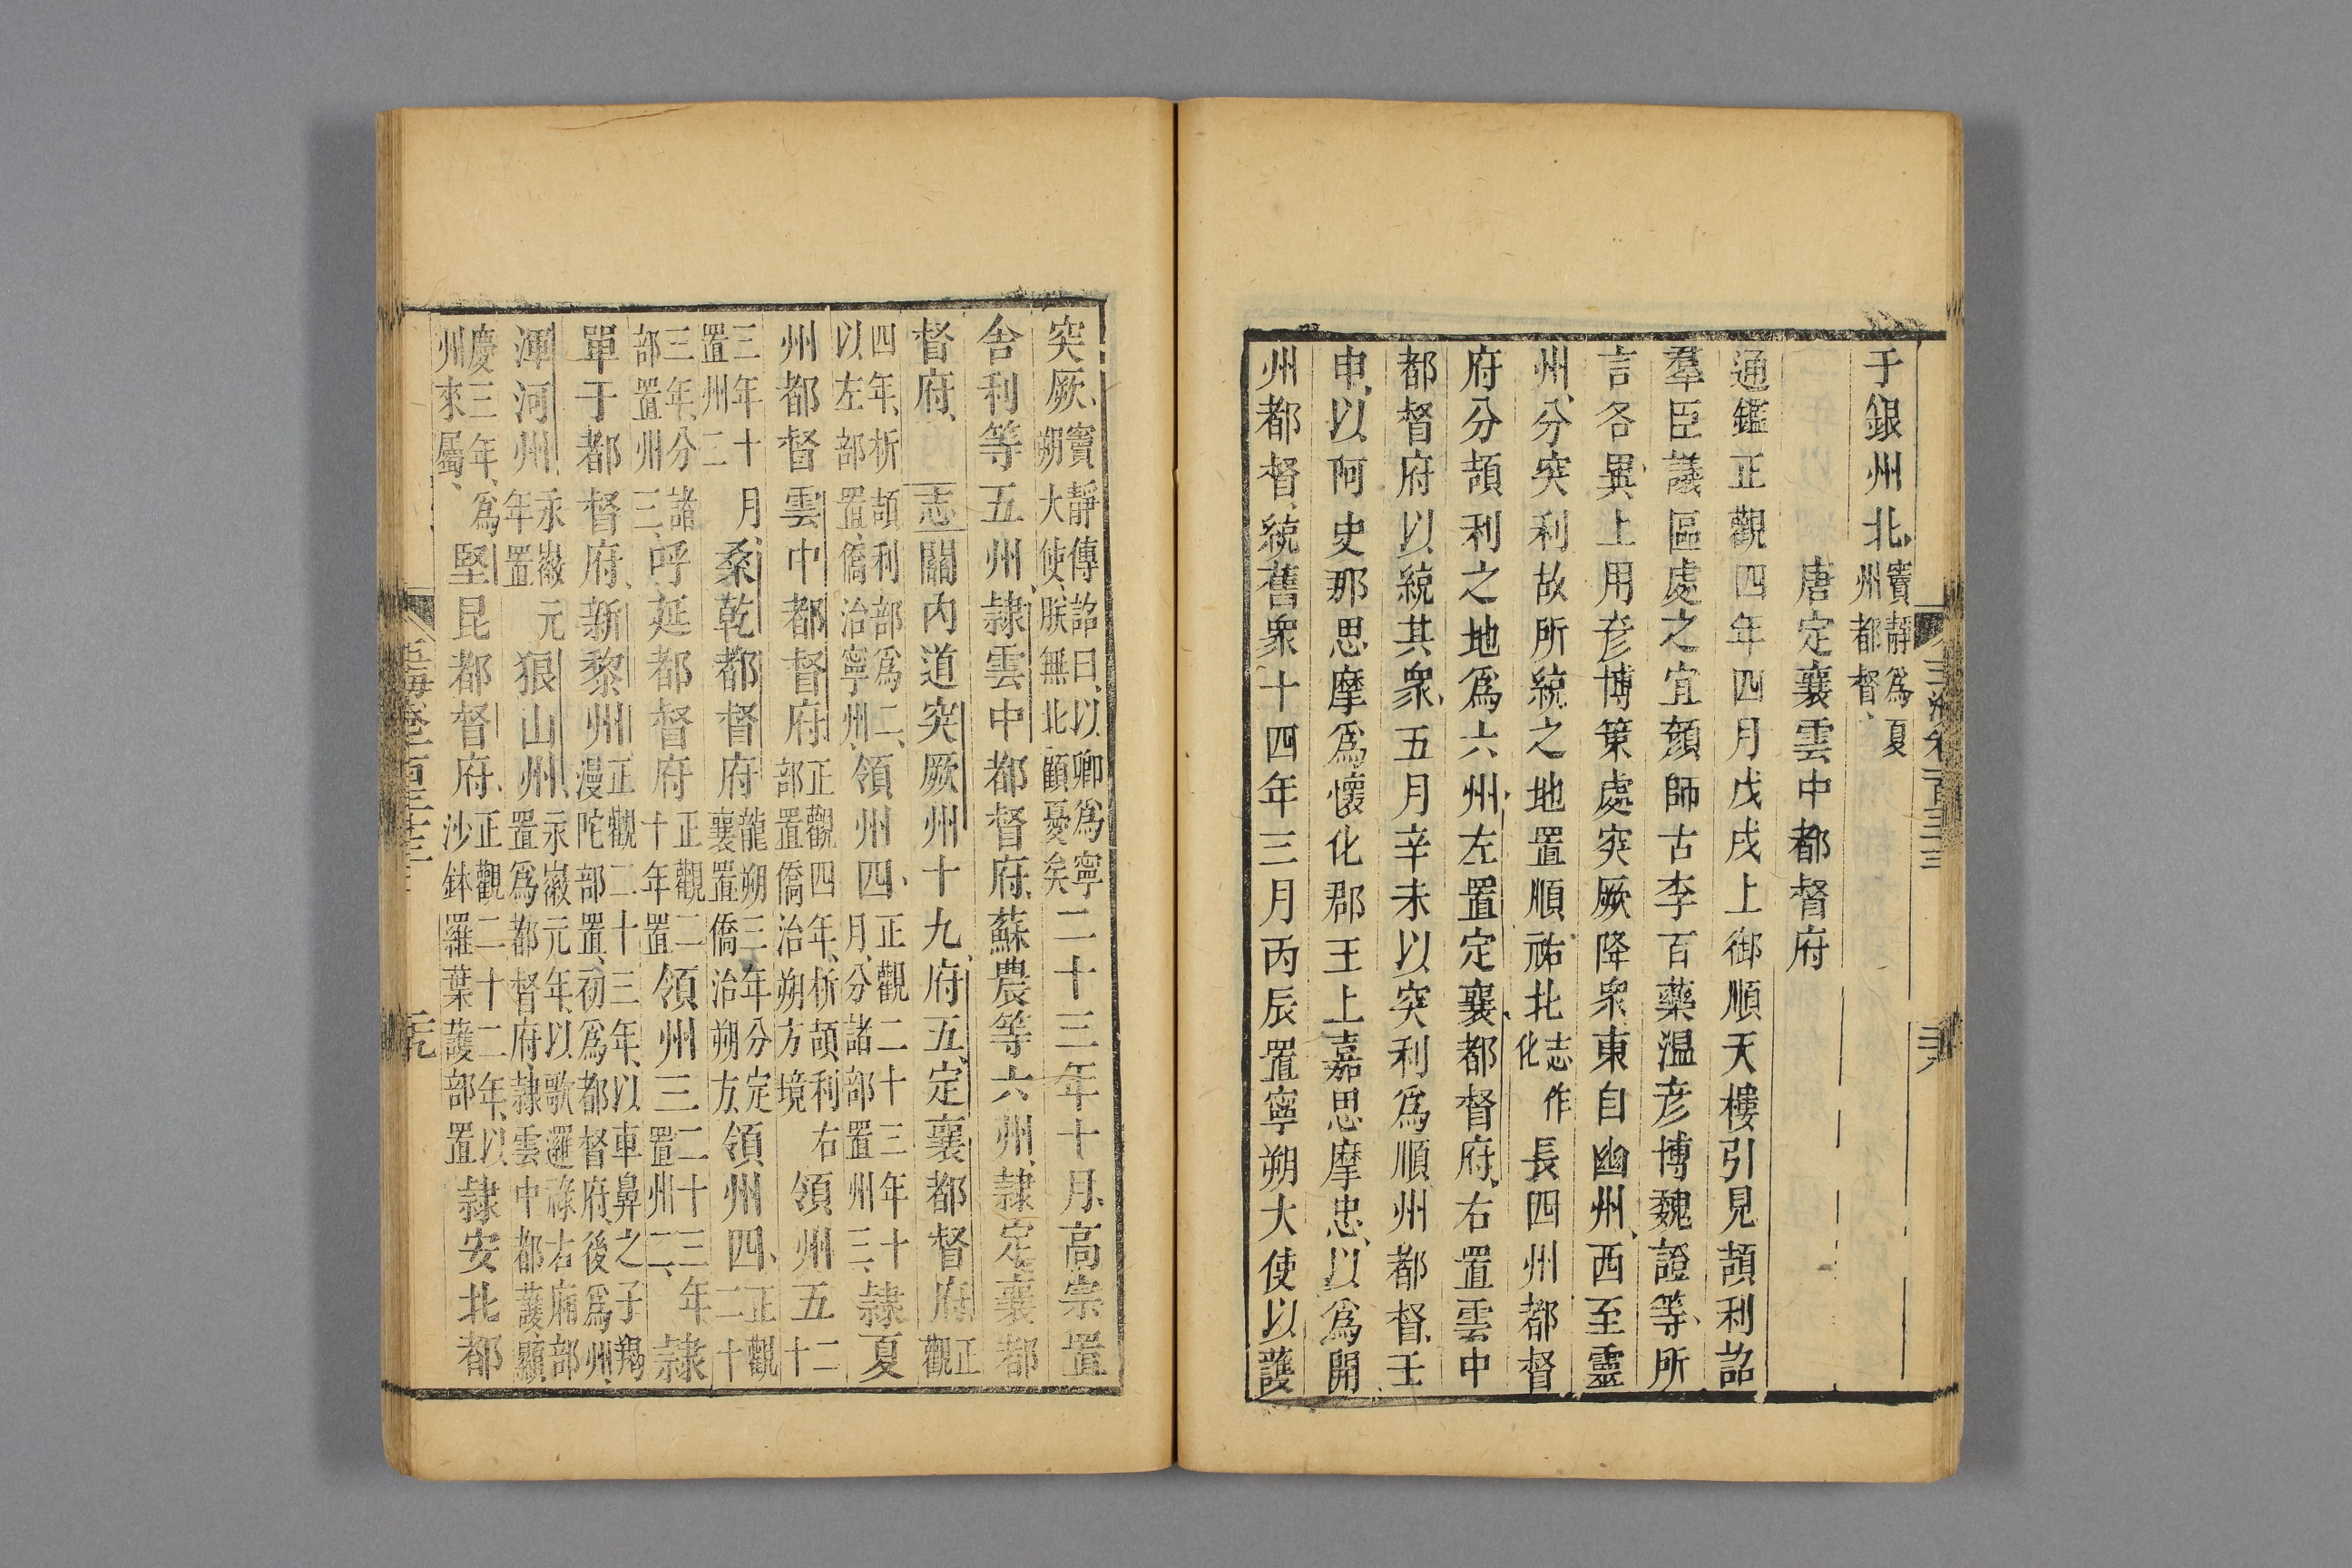 于銀州北竇靜爲夏州都督
唐定襄雲中都督府
通鑑正觀四年四月戊戌上御順天樓引見頡利詔
羣臣議區處之宜顏師古李百藥温彥博魏證等所
言各異上用彥博策處突厥降衆東自幽州西至靈
州分突利故所統之地置順祐北志作化長四州都督
府分頡利之地爲六州左置定襄都督府右置雲中
都督府以統其衆五月辛未以突利爲順州都督壬
申以阿史那思摩爲懷化郡王上嘉思摩忠以爲開
州都督統舊衆十四年三月丙辰置寧朔大使以護
突厥竇靜傳詔曰以卿爲寧朔大使朕無北顧憂矣二十三年十月高宗置
舍利等五州隷雲中都督府蘇農等六州隷定襄都
督府志關內道突厥州十九府五定襄都督府正觀
四年析頡利部爲二以左部置僑治寧州領州四正觀二十三年十月分諸部置州三隷夏
州都督雲中都督府正觀四年析頡利右部置僑治朔方境領州五二十
三年十月置州二桑乾都督府龍朔三年分定襄置僑治朔方領州四正觀二十
三年分諸部置州三呼延都督府正觀二十年置領州三二十三年置州二隷
單于都督府新黎州正觀二十三年以車鼻之子羯漫陀部置初爲都督府後爲州
渾河州永徽元年置狼山州永徽元年以歌邏祿右廂部置爲都督府隷雲中都護顯
慶三年爲州來屬堅昆都督府正觀二十二年以沙鉢羅葉護部置隷安北都
玉海卷一百三十三
二十九